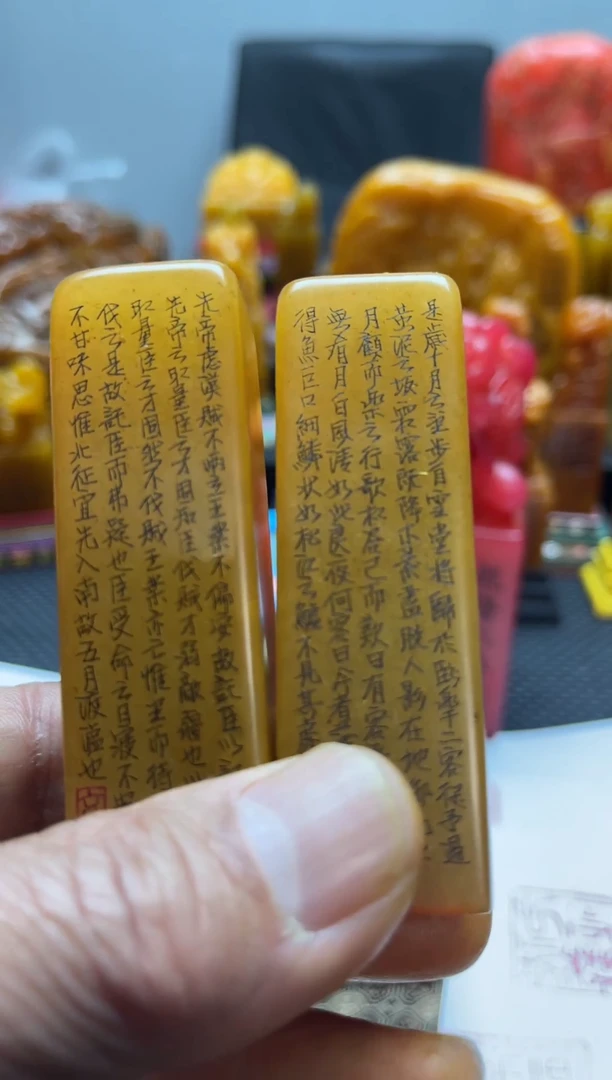 是歲十月之望步自雪堂將歸於臨皋二客從予過
黃泥之坂霜露既降木葉盡脫人影在地仰
月顧而樂之行歌相答已而歎曰有客
無肴月白風清如此良夜何客曰今者
得魚巨口細鱗狀如松江之鱸不見其
先帝慮漢賊不兩立王業不偏安故託臣以
先帝之 量臣之才固知臣伐賊才弱敵彊也
量臣之才固然不伐賊王業亦亡惟坐而待
伐之是故託臣而弗疑也臣受命之日寢不
不甘味思惟北征宜先入南故五月渡瀘也